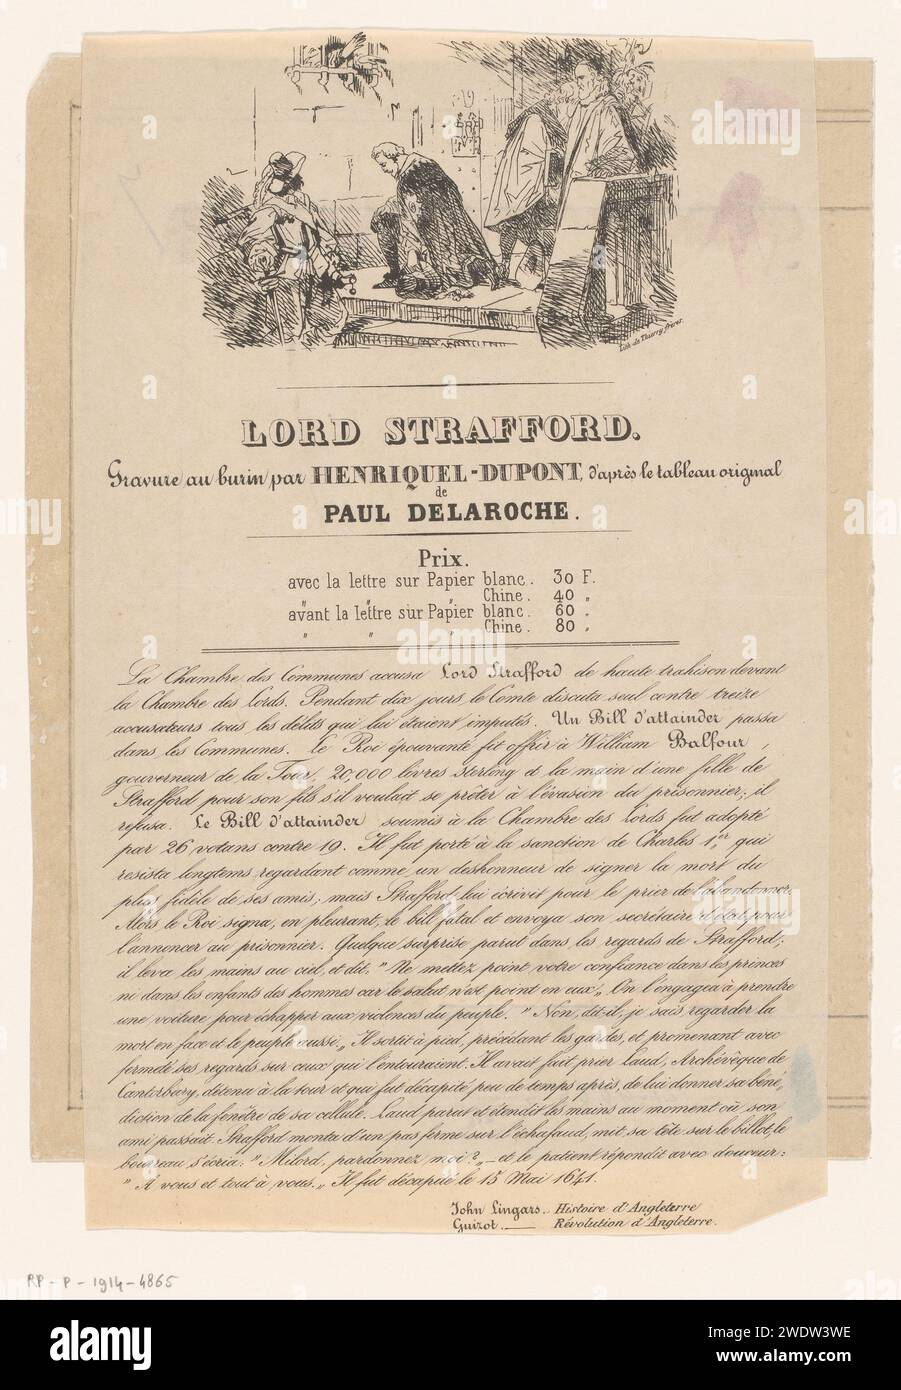 Lith. de Thierry frères
LORD STRAFFORD.
Gravure au burin par HENRIQUEL-DUPONT, d'après le tableau original
de
PAUL DELAROCHE.
Prix.
avec la lettre sur Papier blanc. 30 F.
" " " Chine. 40 "
avant la lettre sur Papier blanc. 60 "
" " " Chine. 80 "
La Chambre des Communes accusa Lord Strafford de haute trahison devant
la Chambre des Lords. Pendant dix jours, le Comte discuta seul contre treize
accusateurs tous les délits qui lui étaient imputés. Un Bill d'attainder passa
dans les Communes. Le Roi épouvanté fit offrir à William Balfour,
gouverneur de la Tour, 20,000 livres sterling et la main d'une fille de
Strafford pour son fils s'il voulait se prêter à l'évasion du prisonnier; il
refusa. Le Bill d'attainder soumis à la Chambre des Lords fut adopté
par 26 votans contre 19. Il fut porté à la sanction de Charles 1er, qui
resista longtems regardant comme un deshonneur de signer la mort du
plus fidèle de ses amis; mais Strafford lui écrivit pour le prier de l'abandonner.
Alors le Roi signa, en pleurant, le bill fatal et envoya son secrétaire d'état pour
l'annoncer au prisonnier. Quelque surprise parut dans les regards de Strafford;
il leva les mains au ciel, et dit, " Ne mettez point votre confiance dans les princes
ni dans les enfants des hommes car le salut n'est point en eux„ On l'engagea à prendre
une voiture pour échapper aux violences du peuple. " Non, dit-il, je sais regarder la
mort en face et le peuple aussi.„ Il sortit à pied, précédant les gardes, et promenant avec
fermeté ses regards sur ceux qui l'entouraient. Il avait fait prier Laud, Archévêque de
Cantorbery, détenu à la tour et qui fut décapité peu de temps après, de lui donner sa béné,
diction de la fenêtre de sa cellule. Laud parut et étendit les mains au moment où son
ami passait. Strafford monta d'un pas ferme sur l'échafaud, mit sa tête sur le billot, le
bourreau s'écria: " Milord, pardonnez moi?„ — et le patient répondit avec douceur:
" A vous et tout à vous.„ Il fut décapité le 15 Mai 1641.
John Lingars. Histoire d'Angleterre
Guizot. — Révolution d'Angleterre.
RP - P - 1914 - 4865
alamy
Image ID: 2WDW3WE
www.alamy.com